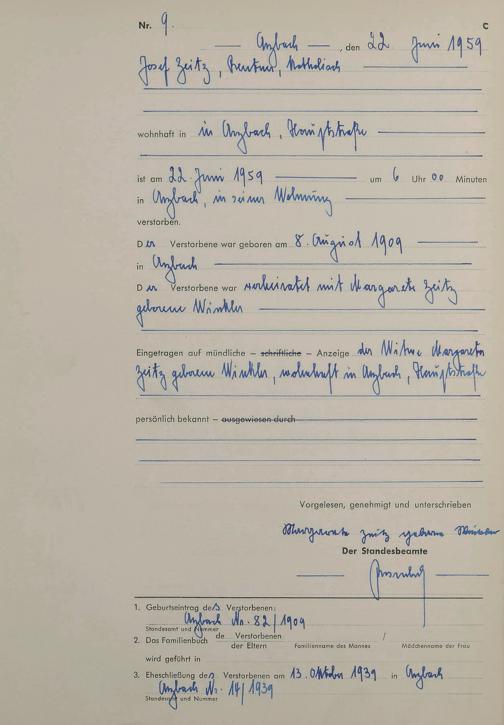 Nr. 9. C
Arzbach, den 22 Juni 1959
Josef Zeitz, Rentner, Katholisch
wohnhaft in in Arzbach, Hauptstraße
ist am 22. Juni 1959 um 6 Uhr 00 Minuten
in Arzbach, in seiner Wohnung
verstorben.
Der Verstorbene war geboren am 8. August 1909
in Arzbach
Der Verstorbene war verheiratet mit Margarete Zeitz
geborene Winkler
Eingetragen auf mündliche – schriftliche – Anzeige der Witwe Margarete
Zeitz geborene Winkler, wohnhaft in Arzbach, Hauptstraße
persönlich bekannt – ausgewiesen durch
Vorgelesen, genehmigt und unterschrieben
Margarete Zeitz geborene Winkler
Der Standesbeamte
1. Geburtseintrag des Verstorbenen:
Arzbach Nr. 82/1909
Standesamt und Nummer
2. Das Familienbuch de Verstorbenen /
der Eltern Familienname des Mannes Mädchenname der Frau
wird geführt in
3. Eheschließung des Verstorbenen am 13. Oktober 1939 in Arzbach
Arzbach Nr. 14/1939
Standesamt und Nummer